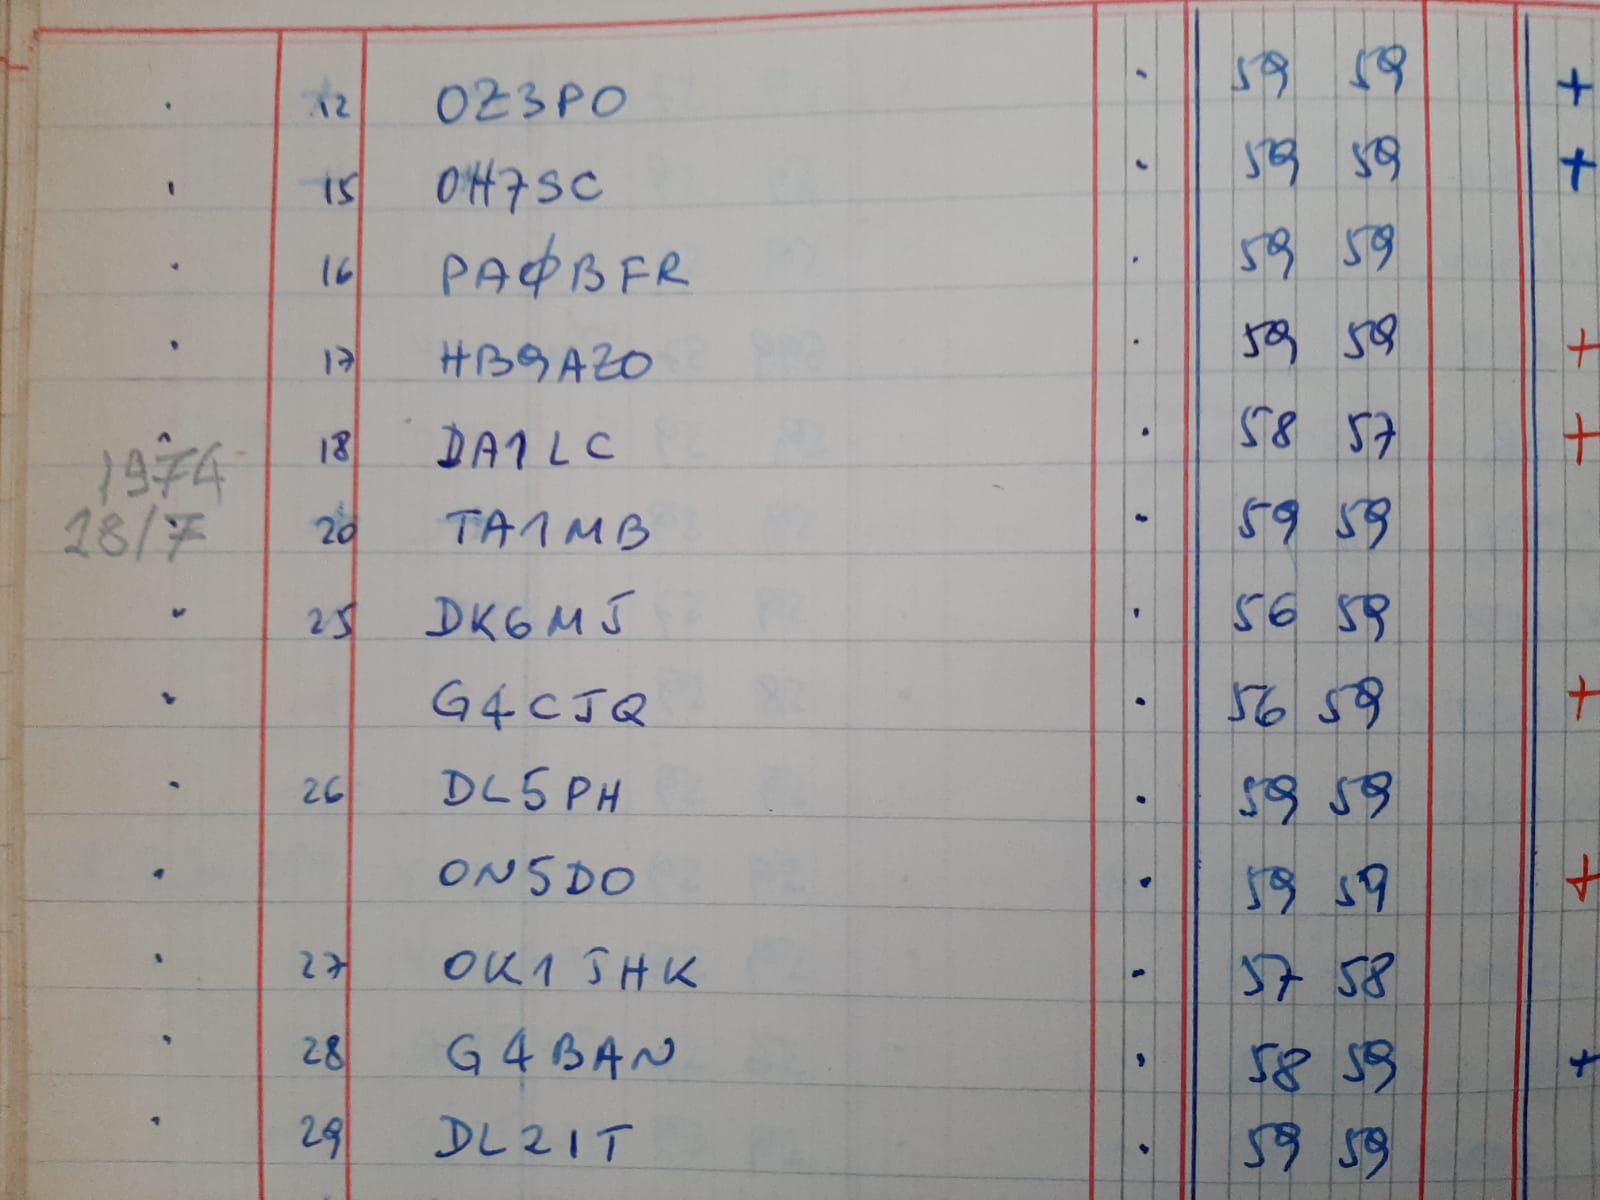 · 12 OZ3PO · 59 59 +
· 15 OH7SC · 59 59 +
· 16 PAØBFR · 59 59
· 17 HB9AZO · 59 59 +
· 18 DA1LC · 58 57 +
1974
28/7 20 TA1MB · 59 59
· 25 DK6MJ · 56 59
· G4CJQ · 56 59 +
· 26 DL5PH · 59 59
· ON5DO · 59 59 +
· 27 OK1JHK · 57 58
· 28 G4BAN · 58 59 +
· 29 DL2IT · 59 59